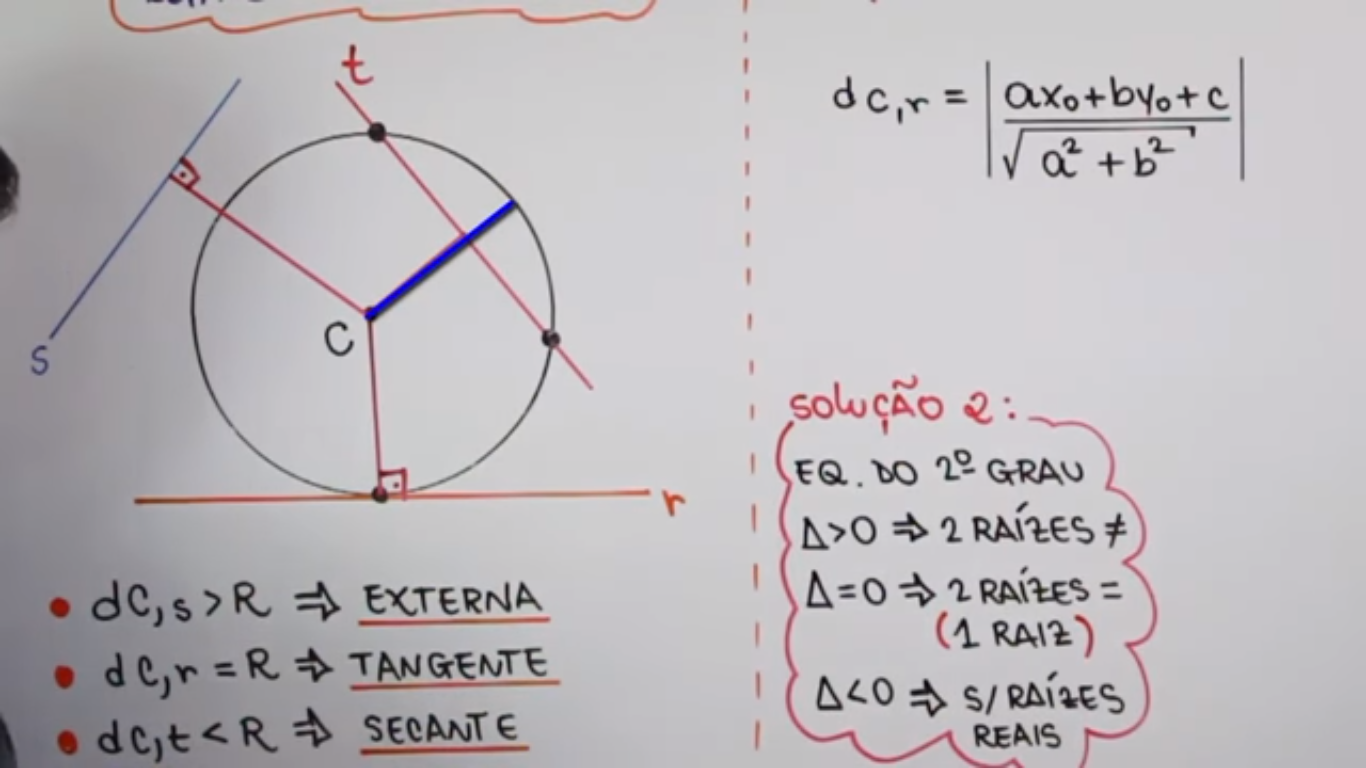 t
S
C
r
• dC,s > R ⇒ EXTERNA
• dC,r = R ⇒ TANGENTE
• dC,t < R ⇒ SECANTE
dC,r = | ax₀+by₀+c / √a²+b² |
SOLUÇÃO 2:
EQ. DO 2º GRAU
Δ>0 ⇒ 2 RAÍZES ≠
Δ=0 ⇒ 2 RAÍZES =
(1 RAIZ)
Δ<0 ⇒ S/ RAÍZES
REAIS